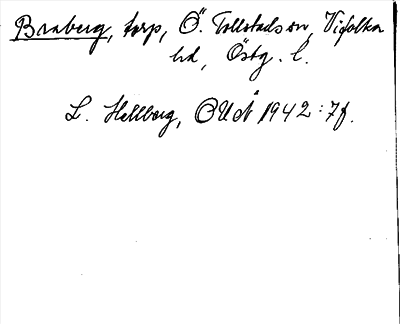 Braberg, torp, Ö. Tollstads sn, Vifolka
hd, Östg. l.
L. Hellberg, OUÅ 1942: 7f.